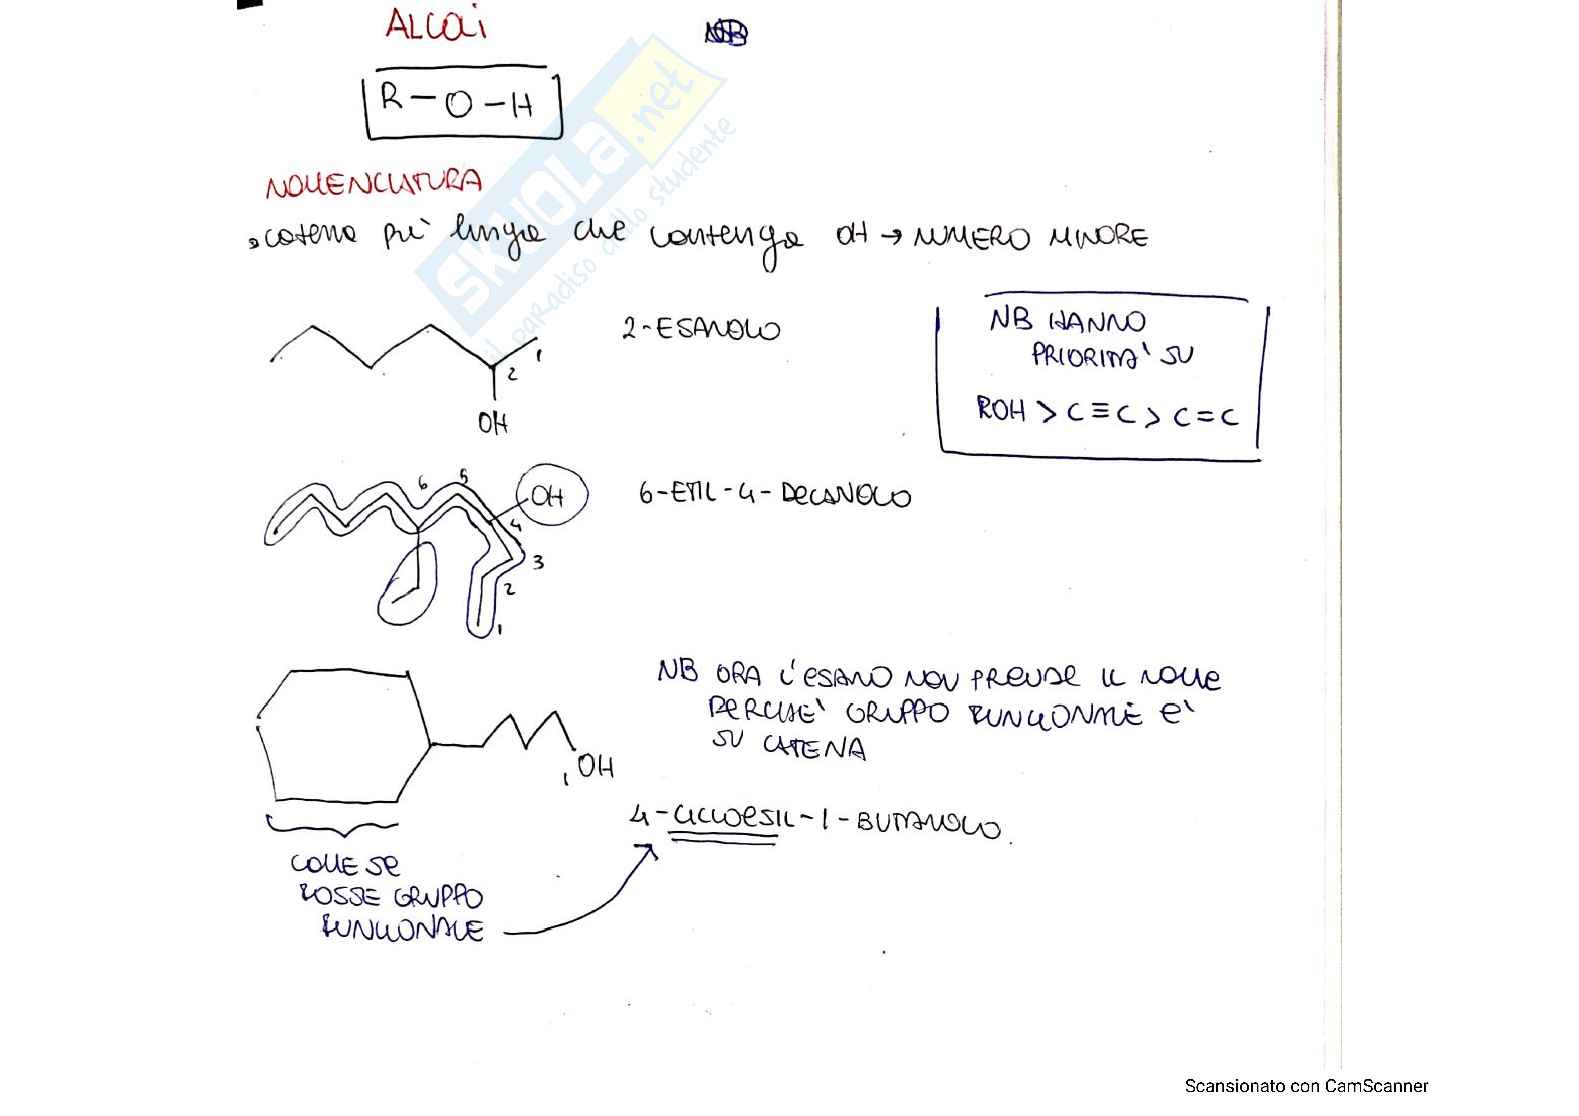 ALCOLI
NB
R-O-H
NOMENCLATURA
catena più lunga che contenga OH → NUMERO MINORE
2-ESANOLO
1
2
OH
NB HANNO
PRIORITA' SU
ROH > C≡C > C=C
6
5
OH
4
3
2
1
6-ETIL-4-DECANOLO
NB ORA L'ESANO NON PRENDE IL NOME
PERCHE' GRUPPO FUNZIONALE E'
SU CATENA
1
OH
4-CICLOESIL-1-BUTANOLO.
COME SE
FOSSE GRUPPO
FUNZIONALE
SKUOLA.net
il paradiso dello studente
Scansionato con CamScanner